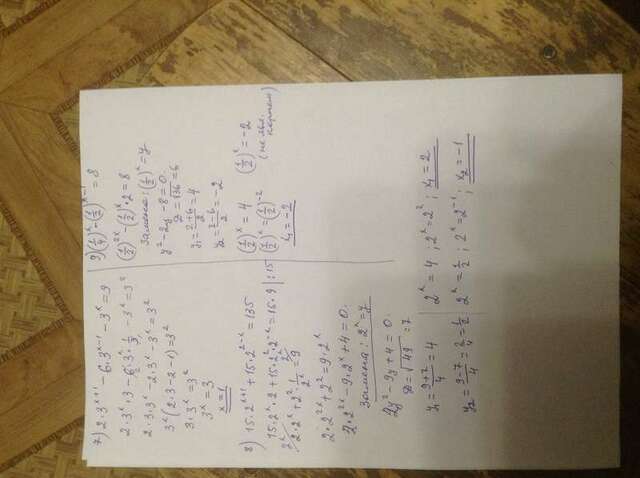 7) 2·3^(x+1) − 6·3^(x−1) − 3^x = 9
2·3^x·3 − 6·3^x·1/3 − 3^x = 3^2
2·3·3^x − 2·3^x − 3^x = 3^2
3^x(2·3−2−1)=3^2
3·3^x = 3^2
3^x = 3
x=1
8) 15·2^(x+1) + 15·2^(2−x) = 135
15·2^x·2 + 15·2^2·2^(−x) = 15·9 |:15
2·2^x + 2^2·1/2^x = 9
2·2^(2x) + 2^2 = 9·2^x
2·2^(2x) − 9·2^x + 4 = 0.
Замена: 2^x = y
2y^2 − 9y + 4 = 0.
D = √49 = 7
y₁ = (9+7)/4 = 4
y₂ = (9−7)/4 = 2/4 = 1/2
2^x = 4 ; 2^x = 2^2 ; x₁ = 2
2^x = 1/2 ; 2^x = 2^(−1) ; x₂ = −1
9) (1/4)^x − (1/2)^(x−1) = 8
(1/2)^(2x) − (1/2)^x·2 = 8
Замена: (1/2)^x = y
y^2 − 2y − 8 = 0.
D = √36 = 6
y₁ = (2+6)/2 = 4
y₂ = (2−6)/2 = −2
(1/2)^x = 4 (1/2)^x = −2
(1/2)^x = (1/2)^(−2) (не явл.
корнем)
x₁ = −2